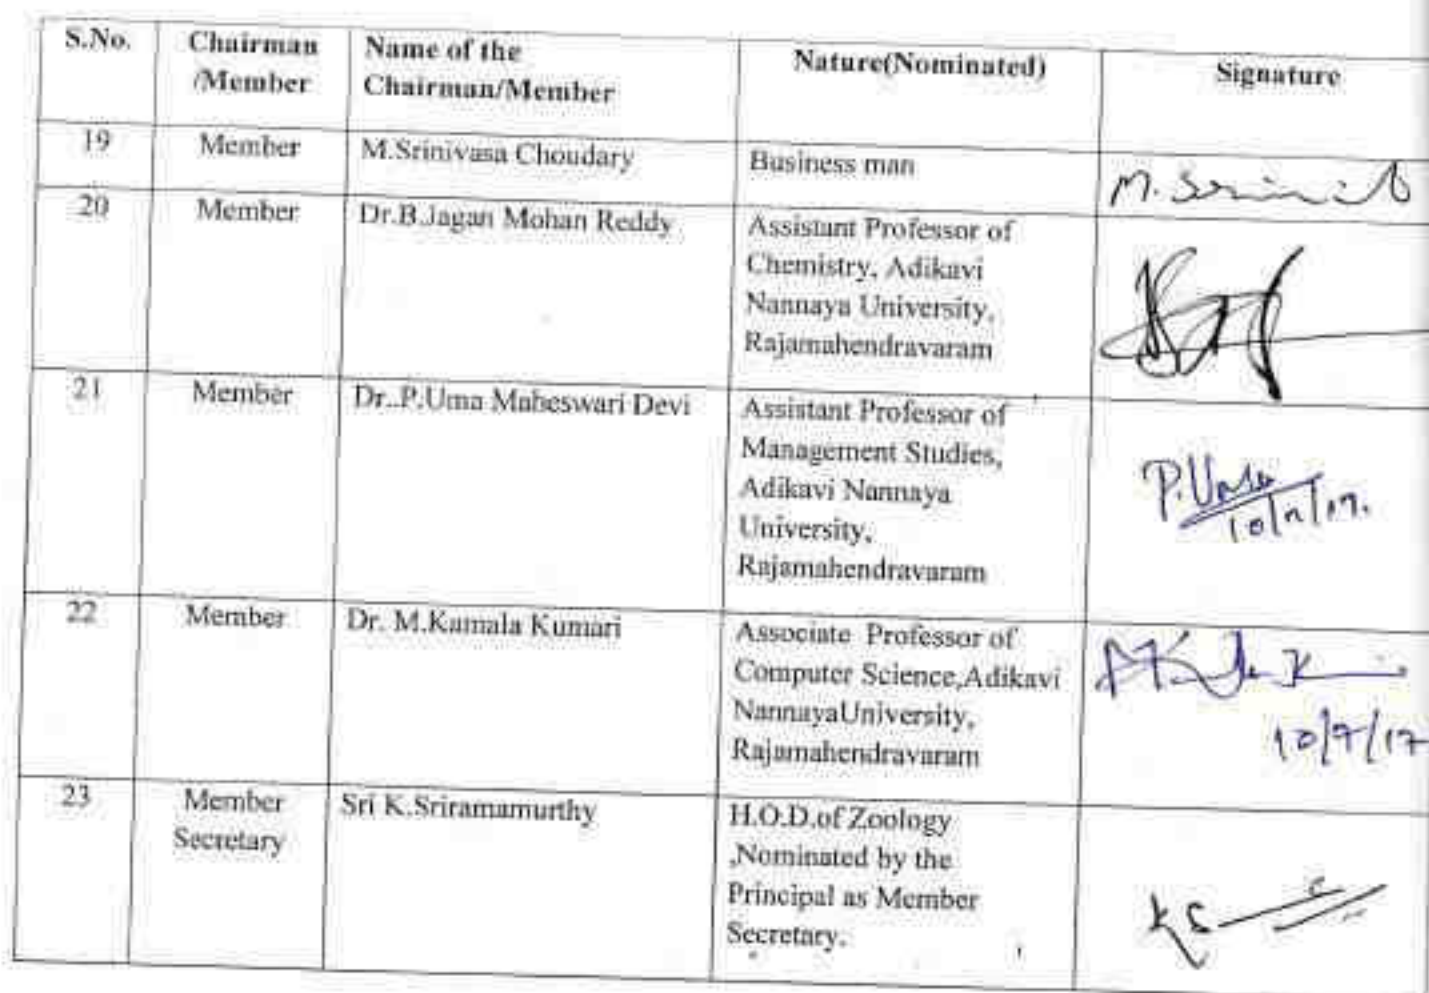 S.No. Chairman /Member Name of the Chairman/Member Nature(Nominated) Signature
19 Member M.Srinivasa Choudary Business man
20 Member Dr.B.Jagan Mohan Reddy Assistant Professor of
Chemistry, Adikavi
Nannaya University,
Rajamahendravaram
21 Member Dr..P.Uma Maheswari Devi Assistant Professor of
Management Studies,
Adikavi Nannaya
University,
Rajamahendravaram
P.Uma
22 Member Dr. M.Kamala Kumari Associate Professor of
Computer Science,Adikavi
NannayaUniversity,
Rajamahendravaram
10/7/17
23 Member Secretary Sri K.Sriramamurthy H.O.D.of Zoology
,Nominated by the
Principal as Member
Secretary.